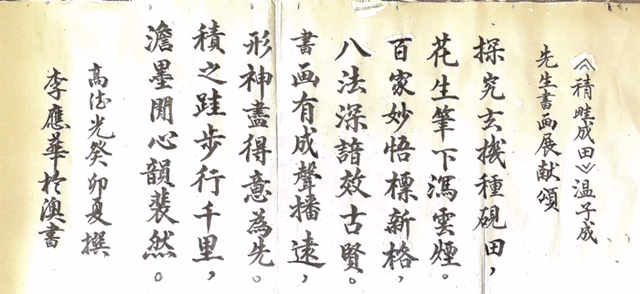 《積畦成田》溫子成
先生書画展献頌
探究玄機種硯田，
花生筆下瀉雲煙。
百家妙悟標新格，
八法深諳效古賢。
書画有成聲播遠，
形神盡得意為先。
積之跬步行千里，
澹墨閒心韻裴然。
高德光癸卯夏撰
李應華於澳書